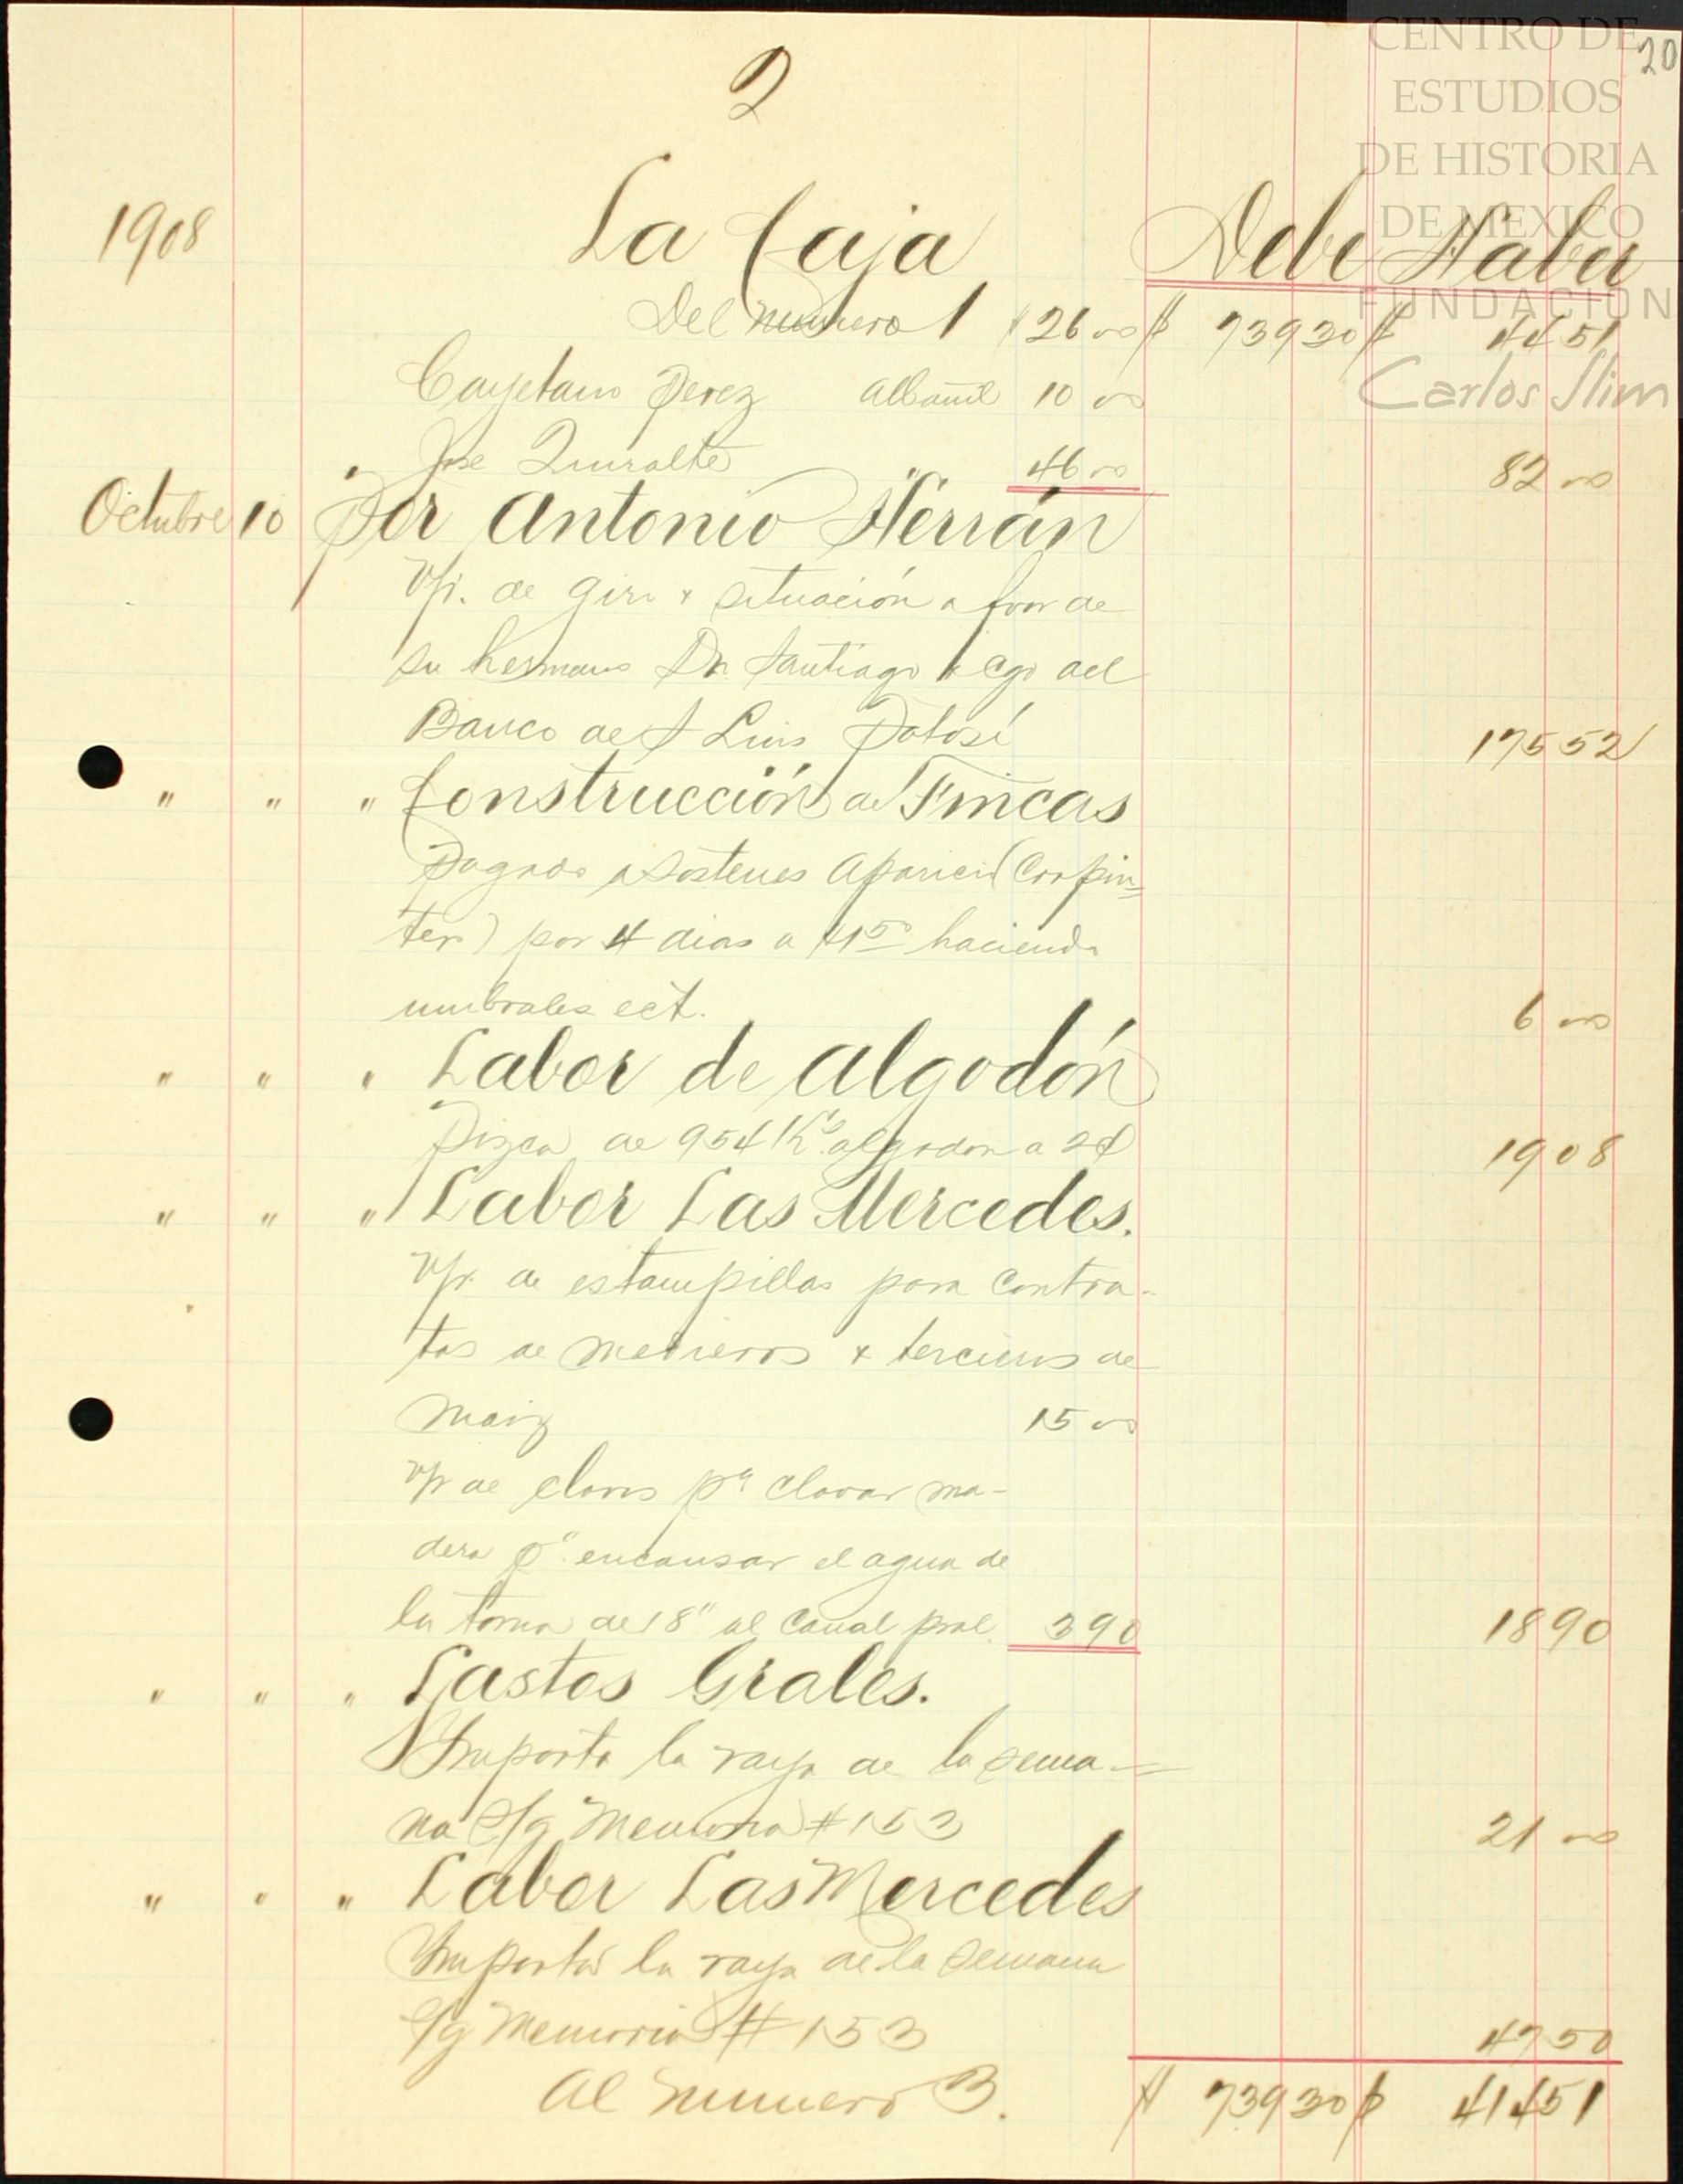 CENTRO DE
ESTUDIOS
DE HISTORIA
DE MEXICO
FUNDACIÓN
Carlos Slim
20
2
1908 La Caja Debe Haber
Del número 1 $ 26 00 $ 739 30 $ 44 51
Cayetano Perez albañil 10 00
Jose 46 00 82 00
Octubre 10 Por Antonio Herrán
V/r. de giro y situación a favor de
su hermano Dn. Santiago a cgo del
Banco de S Luis Potosí 175 52
" " " Construcción de Fincas
Pagado a Sostenes Aparicio (Carpin=
tero) por 4 dias a $1 50 haciendo
umbrales ect. 6 00
" " " Labor de Algodón
Pizca de 954 Ks. algodon a 2¢ 19 08
" " " Labor Las Mercedes.
V/r. de estampillas para contra-
tos de medieros y terceros de
maiz 15 00
V/r de clavos pa clavar ma-
dera pa. encausar el agua de
la toma de 18" al Canal pral. 3 90 18 90
" " " Gastos Grales.
Importa la raya de la sema=
na S/g Memoria # 153 21 00
" " " Labor Las Mercedes
Importa la raya de la semana
S/g Memoria # 153 47 50
Al número 3. $ 739 30 $ 414 51